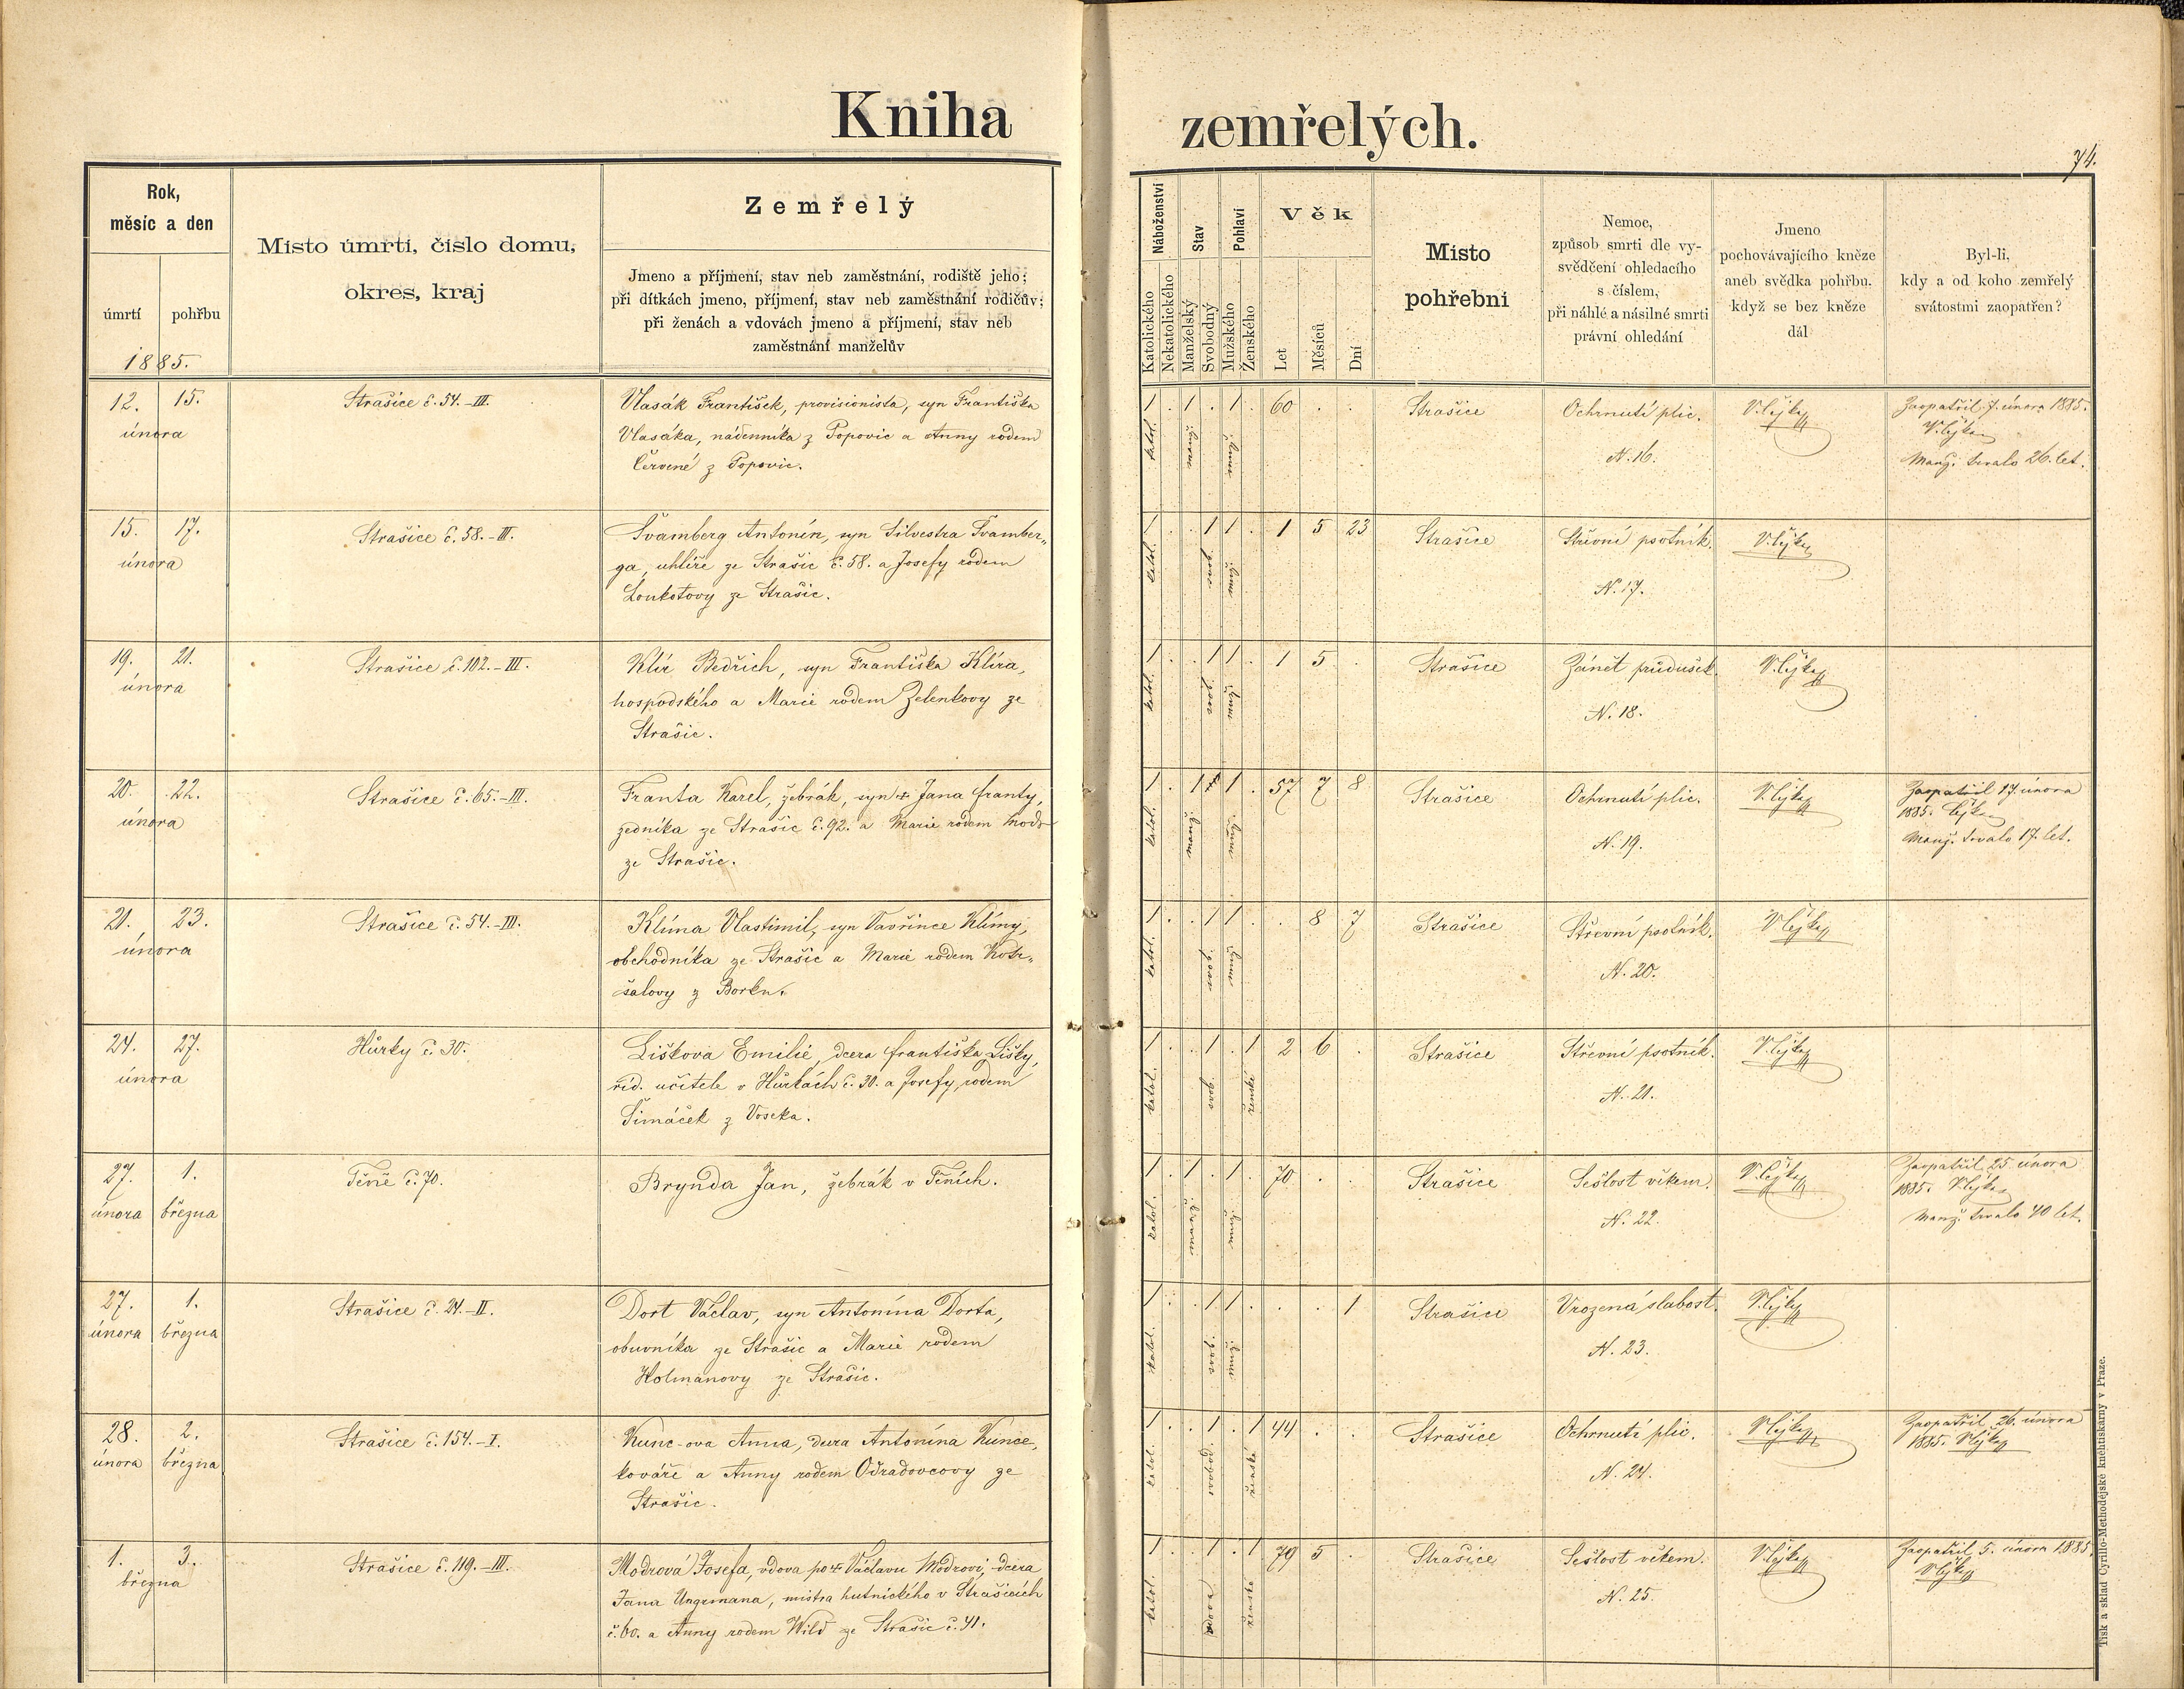 Kniha zemřelých.
74.
Rok,
měsíc a den
úmrtí
pohřbu
1885.
Místo úmrtí, číslo domu,
okres, kraj
Zemřelý
Jmeno a příjmení, stav neb zaměstnání, rodiště jeho;
při dítkách jmeno, příjmení, stav neb zaměstnání rodičův;
při ženách a vdovách jmeno a příjmení, stav neb
zaměstnání manželův
Náboženství
Katolického
Nekatolického
Stav
Manželský
Svobodný
Pohlaví
Mužského
Ženského
Věk
Let
Měsíců
Dní
Místo
pohřební
Nemoc,
způsob smrti dle vy-
svědčení ohledacího
s číslem,
při náhlé a násilné smrti
právní ohledání
Jmeno
pochovávajícího kněze
aneb svědka pohřbu,
když se bez kněze
dál
Byl-li,
kdy a od koho zemřelý
svátostmi zaopatřen?
12. 15.
února
Strašice č. 54.-III.
Vlasák František, provisionista, syn Františka
Vlasáka, nádenníka z Popovic a Anny rodem
Červené z Popovic.
1 . 1 . 1 . 60 . .
katol.
ženatý
mužs.
Strašice
Ochrnutí plic.
N. 16.
V. Cejka
Zaopatřil 7. února 1885.
V. Cejka
Manž. trvalo 26. let.
15. 17.
února
Strašice č. 58.-III.
Švamberg Antonín, syn Silvestra Švamber„
ga, uhlíře ze Strašic č. 58. a Josefy rodem
Loukotovy ze Strašic.
1 . . 1 1 . 1 5 23
katol.
svob.
mužs.
Strašice
Střevní psotník.
N. 17.
V. Cejka
19. 21.
února
Strašice č. 102.-III.
Klír Bedřich, syn Františka Klíra,
hospodského a Marie rodem Zelenkovy ze
Strašic.
1 . . 1 1 . 1 5 .
katol.
svob.
mužs.
Strašice
Zánět průdušek.
N. 18.
V. Cejka
20. 22.
února
Strašice č. 65.-III.
Franta Karel, žebrák, syn + Jana Franty,
zedníka ze Strašic č. 92. a Marie rodem
ze Strašic.
1 . 1 1 . 57 7 8
katol.
manž.
mužs.
Strašice
Ochrnutí plic.
N. 19.
V. Cejka
Zaopatřil 17. února
1885. Cejka
Manž. trvalo 17. let.
21. 23.
února
Strašice č. 54.-III.
Klíma Vlastimil, syn Vavřince Klímy,
obchodníka ze Strašic a Marie rodem Kotr„
šalovy z Borku.
1 . . 1 1 . . 8 7
katol.
svob.
mužs.
Strašice
Střevní psotník.
N. 20.
V. Cejka
24. 27.
února
Hůrky č. 30.
Lišková Emilie, dcera Františka Lišky,
říd. učitele v Hůrkách č. 30. a Josefy, rodem
Šimáček z Voseka.
1 . . 1 . 1 2 6 .
katol.
svob.
ženské
Strašice
Střevní psotník.
N. 21.
V. Cejka
27. 1.
února března
Těně č. 70.
Brynda Jan, žebrák v Těních.
1 . 1 . 1 . 70 . .
katol.
mužs.
Strašice
Sešlost věkem.
N. 22.
V. Cejka
Zaopatřil 25. února
1885. V. Cejka
Manž. trvalo 40 let.
27. 1.
února března
Strašice č. 24.-II.
Dort Václav, syn Antonína Dorta,
obuvníka ze Strašic a Marie rodem
Holmanovy ze Strašic.
1 . . 1 1 . . . 1
katol.
svob.
mužs.
Strašice
Vrozená slabost.
N. 23.
V. Cejka
28. 2.
února března
Strašice č. 154.-I.
Kunc-ova Anna, dcera Antonína Kunce,
kováře a Anny rodem Odradovcovy ze
Strašic.
1 . . 1 . 1 44 . .
katol.
svobod.
ženské
Strašice
Ochrnutí plic.
N. 24.
V. Cejka
Zaopatřil 26. února
1885. V. Cejka
1. 3.
března
Strašice č. 119.-III.
Modrová Josefa, vdova po + Václavu Modrovi, dcera
Jana Ungrmana, mistra hutnického v Strašicích
č. 60. a Anny rodem Wild ze Strašic č. 41.
1 . . 1 . 1 79 5 .
katol.
vdova
ženské
Strašice
Sešlost věkem.
N. 25.
V. Cejka
Zaopatřil 5. února 1885.
V. Cejka
Tisk a sklad Cyrillo-Methodějské knihtiskárny v Praze.